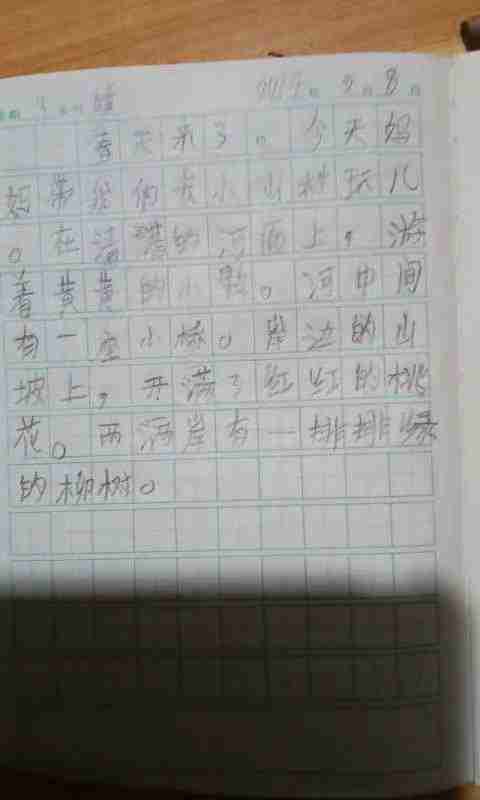 晴 2019年 5月8日
春天来了。今天妈
妈带我们去小山村玩儿
。在清清的河面上，游
着黄黄的小鸭。河中间
有一座小桥。岸边的山
坡上，开满了红红的桃
花。两河岸有一排排绿
的柳树。